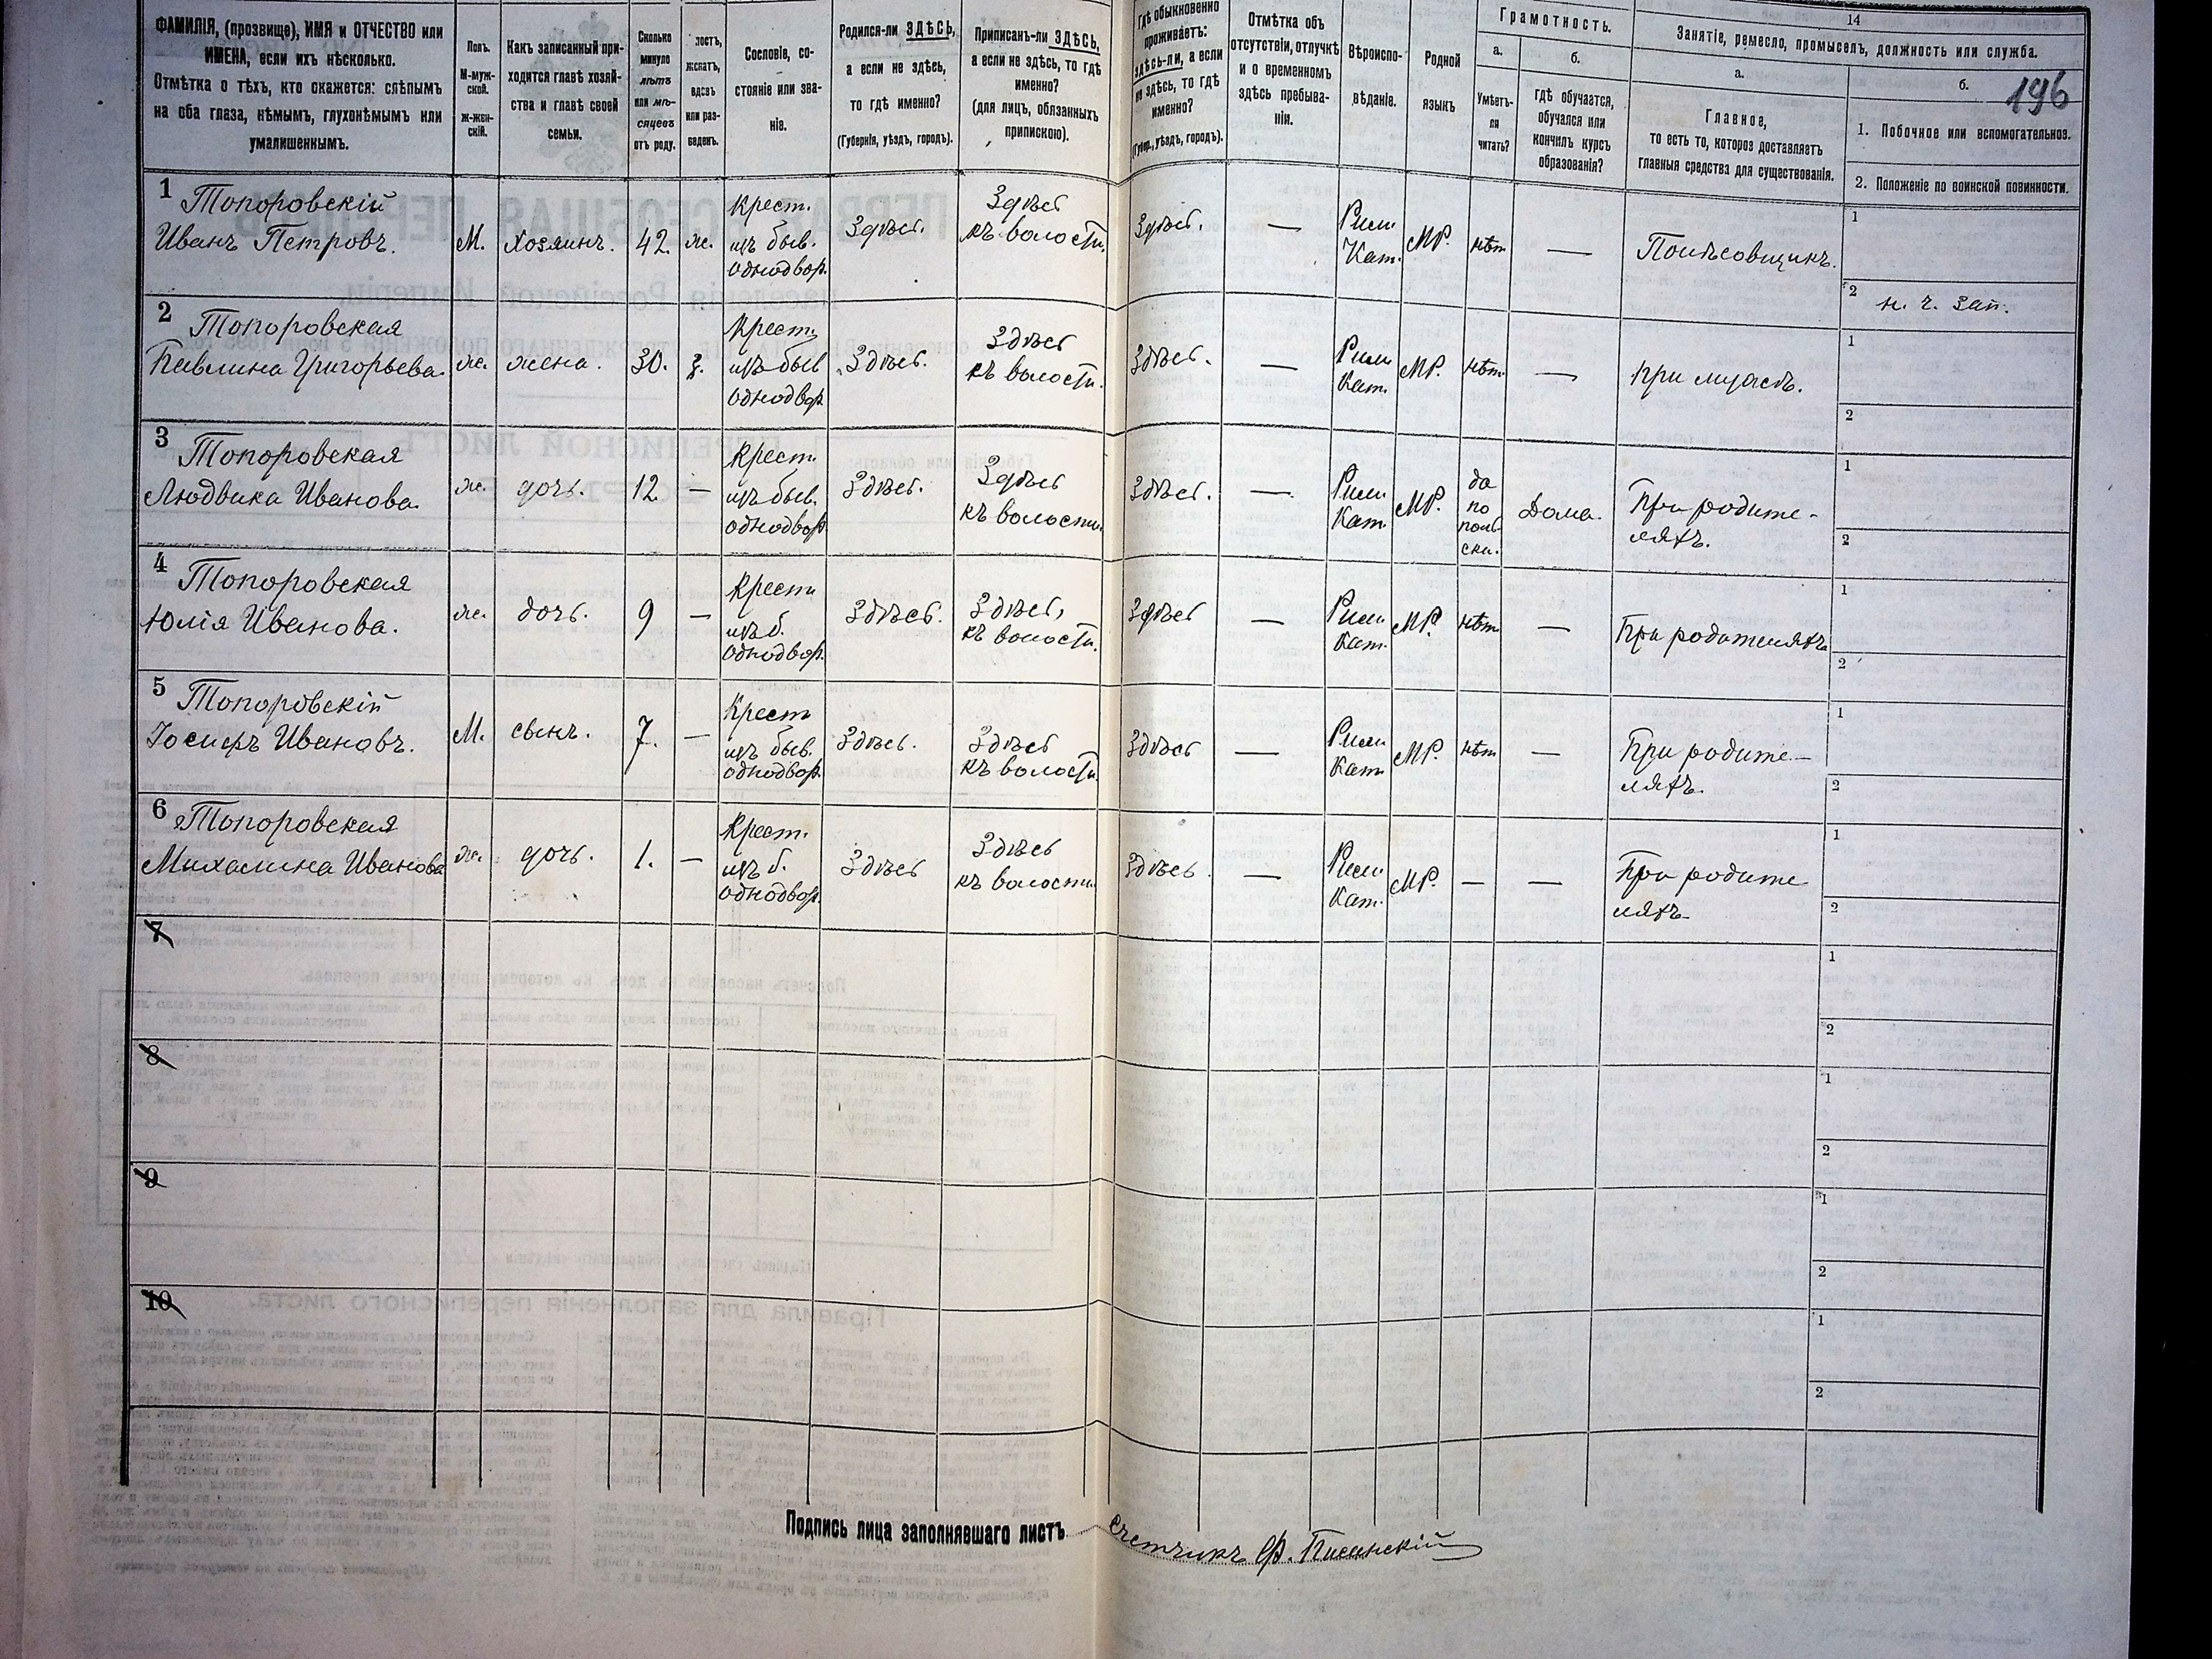 ФАМИЛІЯ, (прозвище), ИМЯ и ОТЧЕСТВО или
ИМЕНА, если ихъ нѣсколько.
Отмѣтка о тѣхъ, кто окажется: слѣпымъ
на оба глаза, нѣмымъ, глухонѣмымъ или
умалишеннымъ.
Полъ.
М-муж-
ской.
Ж-жен-
скій.
Какъ записанный при-
ходится главѣ хозяй-
ства и главѣ своей
семьи.
Сколько
минуло
лѣтъ
или мѣ-
сяцевъ
отъ роду.
лостъ,
женатъ,
вдовъ
или раз-
веденъ.
Сословіе, со-
стояніе или зва-
ніе.
Родился-ли ЗДѢСЬ,
а если не здѣсь,
то гдѣ именно?
(Губернія, уѣздъ, городъ).
Приписанъ-ли ЗДѢСЬ,
а если не здѣсь, то гдѣ
именно?
(для лицъ, обязанныхъ
припискою).
Гдѣ обыкновенно
проживаетъ:
здѣсь-ли, а если
не здѣсь, то гдѣ
именно?
(Губер., уѣздъ, городъ).
Отмѣтка объ
отсутствіи, отлучкѣ
и о временномъ
здѣсь пребыва-
ніи.
Вѣроиспо-
вѣданіе.
Родной
языкъ
Грамотность.
а.
Умѣетъ-
ли
читать?
б.
гдѣ обучается,
обучался или
кончилъ курсъ
образованія?
14
Занятіе, ремесло, промыселъ, должность или служба.
а.
Главное,
то есть то, которое доставляетъ
главныя средства для существованія.
б.
196
1. Побочное или вспомогательное.
2. Положеніе по воинской повинности.
1 Топоровскій
Иванъ Петровъ. М. Хозяинъ. 42. ж.
Крест.
изъ быв.
однодвор.
Здѣсь.
Здѣсь
къ волости.
Здѣсь. —
Рим
Кат.
МР. нѣт — Полѣсовщикъ.
1
2 н. ч. зап.
2 Топоровская
Павлина Григорьева. ж. жена. 30. з.
Крест.
изъ быв
однодвор
Здѣсь.
Здѣсь
къ волости.
Здѣсь. —
Рим
Кат.
МР. нѣт. — при мужѣ.
1
2
3 Топоровская
Людвика Иванова. ж. дочь. 12. —
Крест.
изъ быв.
однодвор
Здѣсь.
Здѣсь
къ волости.
Здѣсь. —
Рим
Кат
МР.
да
по
поль
ски.
Дома.
При родите-
ляхъ.
1
2
4 Топоровская
Юлія Иванова. ж. дочь. 9 —
Крест
изъ б.
однодвор.
Здѣсь.
Здѣсь,
къ волости.
Здѣсь —
Рим
Кат.
МР. нѣт — При родителяхъ
1
2
5 Топоровскій
Іосифъ Ивановъ. М. сынъ. 7. —
Крест
изъ быв.
однодвор.
Здѣсь.
Здѣсь
къ волости
Здѣсь —
Рим
Кат
МР. нѣт —
При родите-
ляхъ.
1
2
6 Топоровская
Михалина Иванова ж. дочь. 1. —
Крест.
изъ б.
однодвор.
Здѣсь
Здѣсь
къ волости
Здѣсь. —
Рим
Кат.
МР. — —
При родите
ляхъ.
1
2
7
1
2
8
1
2
9
1
2
10
1
2
Подпись лица заполнявшаго листъ счетчикъ Ф. Писанскій